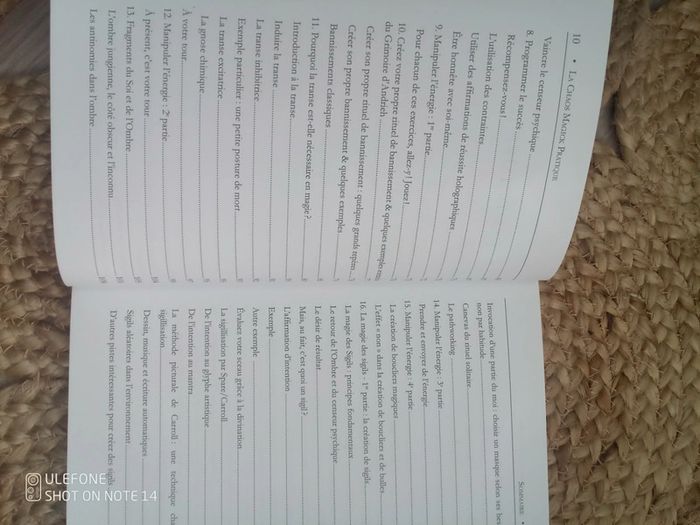 10 • LA CHAOS MAGICK PRATIQUE
Vaincre le censeur psychique
8. Programmer le succès
Récompensez-vous!
L'utilisation des contraintes
Utiliser des affirmations de réussite holographiques
Être honnête avec soi-même
9. Manipuler l'énergie : 1re partie
Pour chacun de ces exercices, allez-y! Jouez!
10. Créez votre propre rituel de bannissement & quelques exemples
du Grimoire d'Andrieh
Créer son propre rituel de bannissement : quelques grands
Créer son propre bannissement & quelques exemples
Bannissements classiques
11. Pourquoi la transe est-elle nécessaire en magie?
Introduction à la transe
Induire la transe
La transe inhibitrice
Exemple particulier : une petite posture de mort
La transe excitatrice
La gnose chimique
À votre tour
12. Manipuler l'énergie : 2e partie
À présent, c'est votre tour
13. Fragments du Soi et de l'Ombre
L'ombre jungienne, le côté obscur et l'inconnu
Les antinomies dans l'ombre
SOMMAIRE •
Invocation d'une partie du moi : choisir un masque selon ses
non par habitude
Canevas du rituel solitaire
Le pathworking
14. Manipuler l'énergie : 3e partie
Prendre et envoyer de l'énergie
15. Manipuler l'énergie : 4e partie
La création de boucliers magiques
L'effet « non » dans la création de boucliers et de balles
16. La magie des sigils : 1re partie : la création de sigils
La magie des Sigils : principes fondamentaux
Le retour de l'Ombre et du censeur psychique
Le désir de résultat
Mais, au fait, c'est quoi un sigil?
L'affirmation d'intention
Exemple
Autre exemple
Évaluez votre sceau grâce à la divination
La sigillisation par Spare/Carroll
De l'intention au glyphe artistique
De l'intention au mantra
La méthode picturale de Carroll : une technique
sigillisation
Dessin, musique et écriture automatiques
Sigils aléatoires dans l'environnement
D'autres pistes intéressantes pour créer des sigils
ULEFONE
SHOT ON NOTE 14